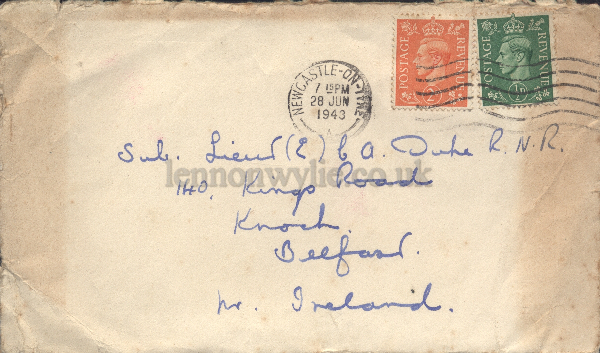 POSTAGE REVENUE
POSTAGE REVENUE
NEWCASTLE-ON-TYNE
7 15PM
28 JUN
1943
Sub. Lieut (E) C A. Duke R.N.R.
lennonwylie.co.uk
140, Kings Road
Knock.
Belfast.
Nr. Ireland.